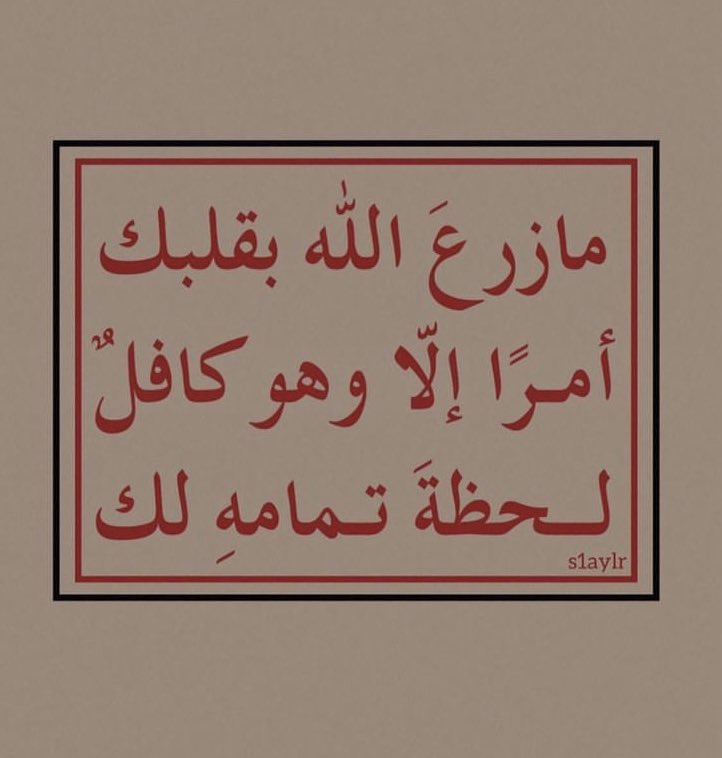 مازرعَ الله بقلبك
أمـرًا إلّا وهو كافلٌ
لـحظةَ تـمامهِ لك
s1aylr